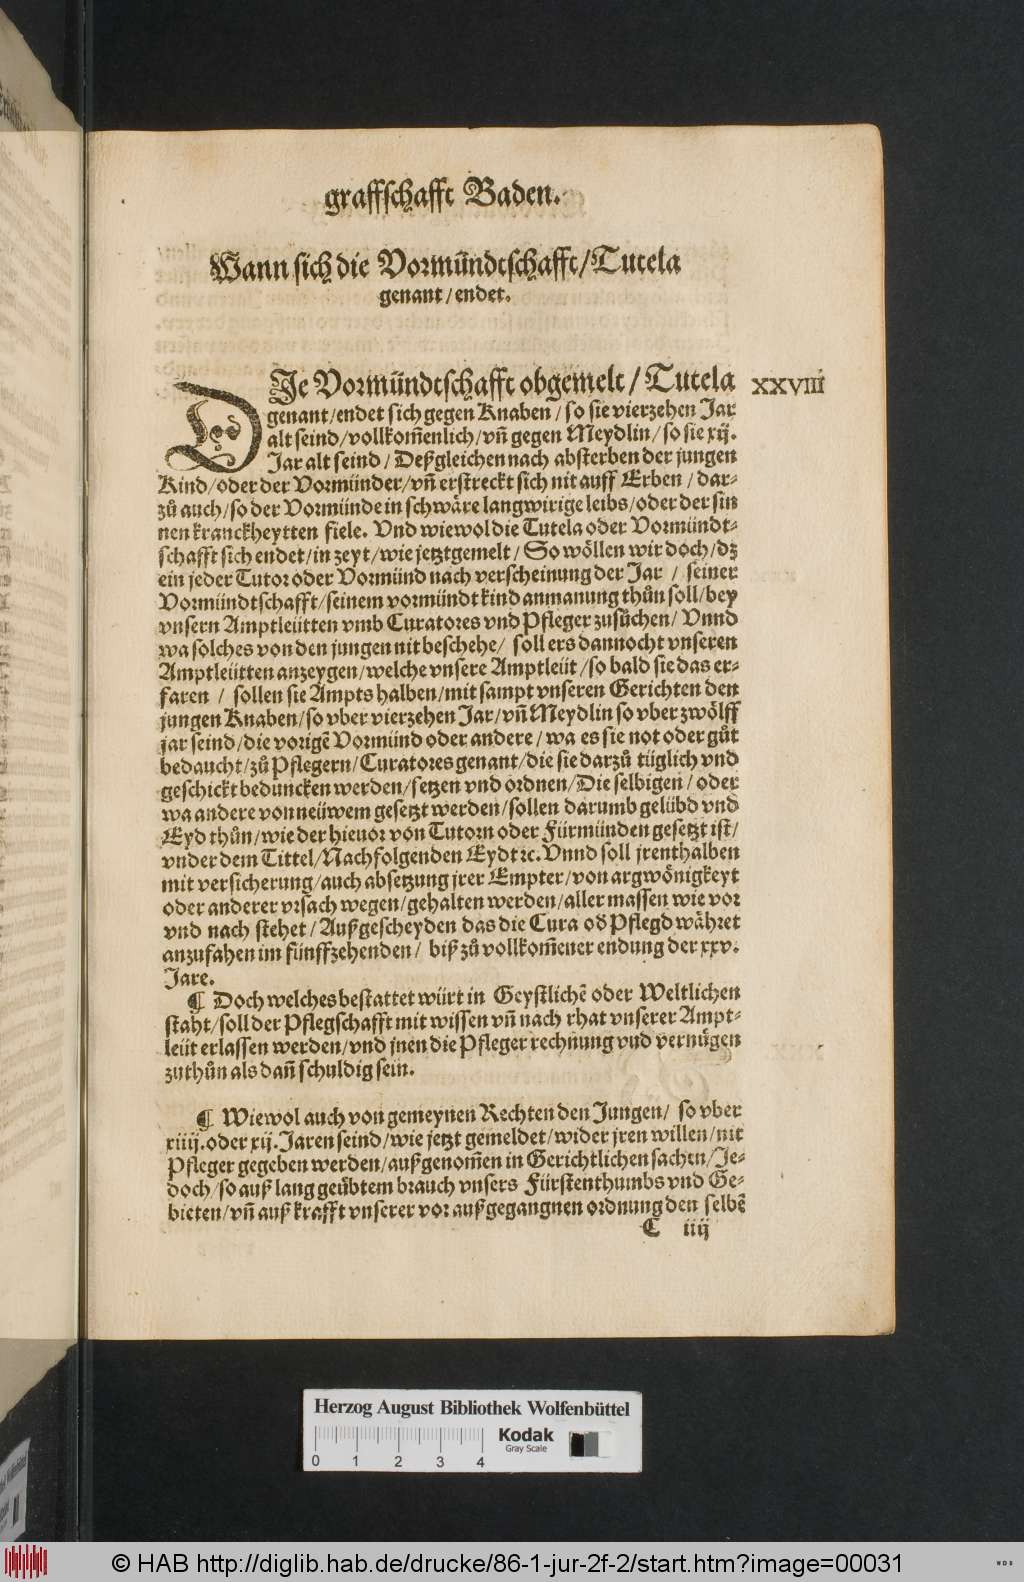 graffschafft Baden.
Wann sich die Vormündtschafft/Tutela
genant/endet.
DIe Vormündtschafft obgemelt/Tutela XXVIII
genant/endet sich gegen Knaben/so sie vierzehen Jar
alt seind/vollkom̄enlich/vn̄ gegen Meydlin/so sie xij.
Jar alt seind/Deßgleichen nach absterben der jungen
Kind/oder der Vormünder/vn̄ erstreckt sich nit auff Erben/dar-
zů auch/so der Vormünde in schwäre langwirige leibs/oder der sin
nen kranckheytten fiele. Vnd wiewol die Tutela oder Vormündt-
schafft sich endet/in zeyt/wie jetztgemelt/So wöllen wir doch/dz
ein jeder Tutor oder Vormünd nach verscheinung der Jar/seiner
Vormündtschafft/seinem vormündt kind anmanung thůn soll/bey
vnsern Amptleütten vmb Curatores vnd Pfleger zusůchen/Vnnd
wa solches von den jungen nit beschehe/soll ers dannocht vnseren
Amptleütten anzeygen/welche vnsere Amptleüt/so bald sie das er-
faren/sollen sie Ampts halben/mit sampt vnseren Gerichten den
jungen Knaben/so vber vierzehen Jar/vn̄ Meydlin so vber zwölff
jar seind/die vorigẽ Vormünd oder andere/wa es sie not oder gůt
bedaucht/zů Pflegern/Curatores genant/die sie darzů tüglich vnd
geschickt beduncken werden/setzen vnd ordnen/Die selbigen/oder
wa andere von neüwem gesetzt werden/sollen darumb gelübd vnd
Eyd thůn/wie der hieuor von Tutorn oder Fürmünden gesetzt ist/
vnder dem Tittel/Nachfolgenden Eydt ꝛc. Vnnd soll jrenthalben
mit versicherung/auch absetzung jrer Empter/von argwönigkeyt
oder anderer vrsach wegen/gehalten werden/aller massen wie vor
vnd nach stehet/Außgescheyden das die Cura od̕ Pflegd währet
anzufahen im fünffzehenden/biß zů vollkom̄ener endung der xxv.
Jare.
¶ Doch welches bestattet würt in Geystlichẽ oder Weltlichen
staht/soll der Pflegschafft mit wissen vn̄ nach rhat vnserer Ampt-
leüt erlassen werden/vnd jnen die Pfleger rechnung vnd vernügen
zuthůn als dan̄ schuldig sein.
¶ Wiewol auch von gemeynen Rechten den Jungen/so vber
xiiij. oder xij. Jaren seind/wie jetzt gemeldet/wider jren willen/nit
Pfleger gegeben werden/außgenom̄en in Gerichtlichen sachen/Je-
doch/so auß lang geübtem brauch vnsers Fürstenthumbs vnd Ge-
bieten/vn̄ auß krafft vnserer vor außgegangnen ordnung den selbẽ
C iiij
Herzog August Bibliothek Wolfenbüttel
Kodak
Gray Scale
0 1 2 3 4
© HAB http://diglib.hab.de/drucke/86-1-jur-2f-2/start.htm?image=00031